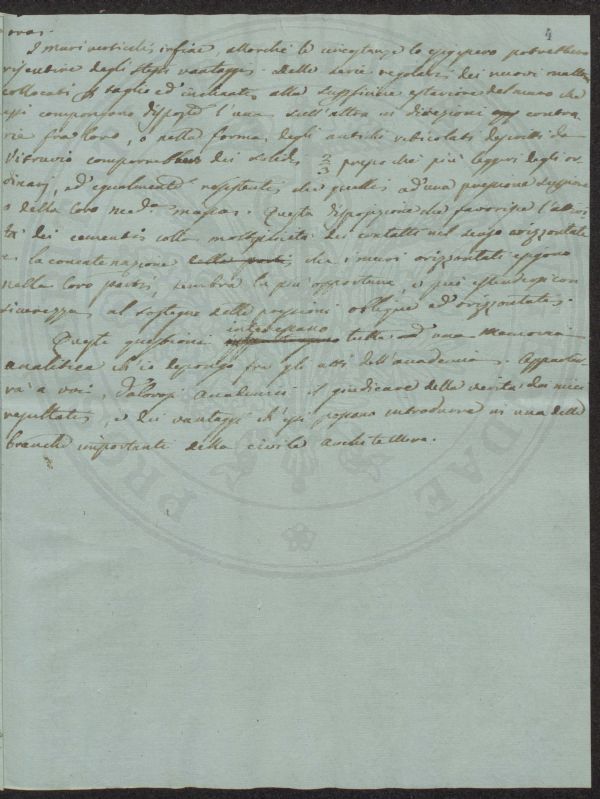 4
I muri verticali, infine, allorchè le circostanze lo esigessero potrebbero
risentire degli stessi vantaggi. Delle serie regolari dei nuovi mattoni
collocati di taglio ed inclinati alla superficie esteriore del muro che
essi compongono disposti l'una sull'altra in direzioni contra
rie fra loro, o nella forma degli antichi reticolati descritti da
Vitruvio comporrebbero dei solidi 2/3 presso che più leggeri degli or
dinarj, ed egualmente resistenti che quelli ad una pressione superiore
o della loro med.a massa. Questa disposizione che favorisce l'attivi
tà dei cementi colla moltiplicità dei contatti nel senso orizzontale
e la concatenazione che i muri orizzontali esigono
nelle loro parti, sembra la più opportuna, e può estendersi con
sicurezza al sostegno delle pressioni oblique ed orizzontali.
interessano
Queste questioni tutte ad una Memoria
analitica ch'io depongo fra gli atti dell'accademia. Apparter
rà a voi, Valorosi Academici il giudicare della verità dei miei
resultati, e dei vantaggi ch'essi possano introdurre in una delle
branche importanti della civile architettura.
PRO
DAE